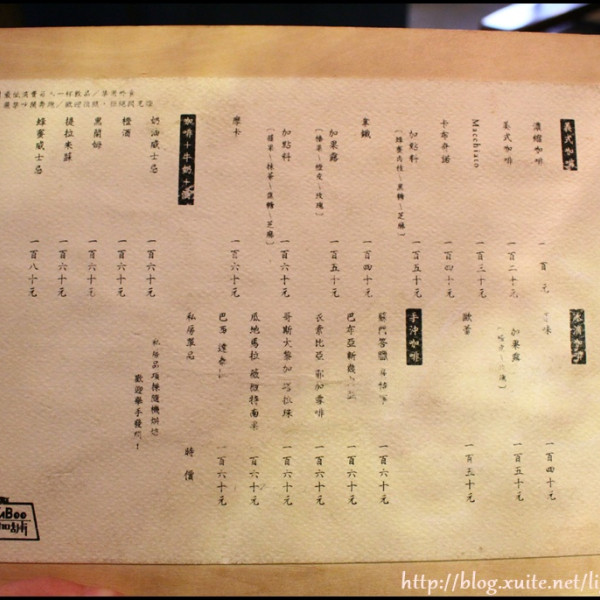 義式咖啡
濃縮咖啡 一百元
美式咖啡 一百二十元
Macchiato 一百三十元
卡布奇諾 一百四十元
加點料 一百五十元
(蜂蜜肉桂~黑糖~芝麻)
拿鐵 一百四十元
加果露 一百五十元
(榛果~橙皮~玫瑰)
加點料 一百六十元
摩卡 一百六十元
咖啡+牛奶+酒
奶油威士忌 一百六十元
橙酒 一百六十元
黑蘭姆 一百六十元
提拉米蘇 一百六十元
蜂蜜威士忌 一百八十元
冰滴咖啡
一百四十元
加果露 一百五十元
歐蕾 一百三十元
手沖咖啡
蘇門答臘 一百六十元
巴布亞新幾內亞 一百六十元
衣索比亞 一百六十元
哥斯大黎加 塔拉珠 一百六十元
瓜地馬拉 薇薇特南果 一百六十元
巴西 一百六十元
私房單品 時價
私房品項採隨機烘焙
歡迎舉手發問!
http://blog.xuite.net/li